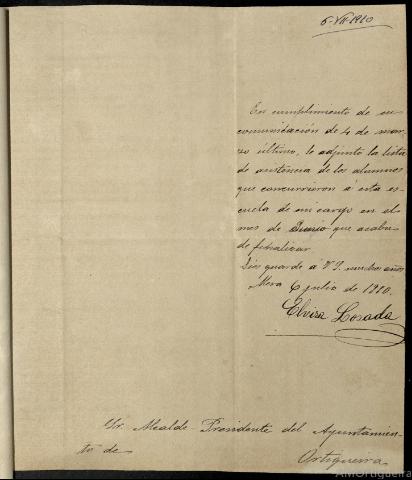 6-VII-1910
En cumplimiento de su
comunicación de 4 de mar-
zo último, le adjunto la lista
de asistencia de los alumnos
que concurrieron á esta es-
cuela de mi cargo en el
mes de Junio que acaba
de finalizar.
Dios guarde á V. S. muchos años
Mera 6 julio de 1910.
Elvira Losada
Sr. Alcalde-Presidente del Ayuntamien-
to de
Ortigueira
AMOrtigueira